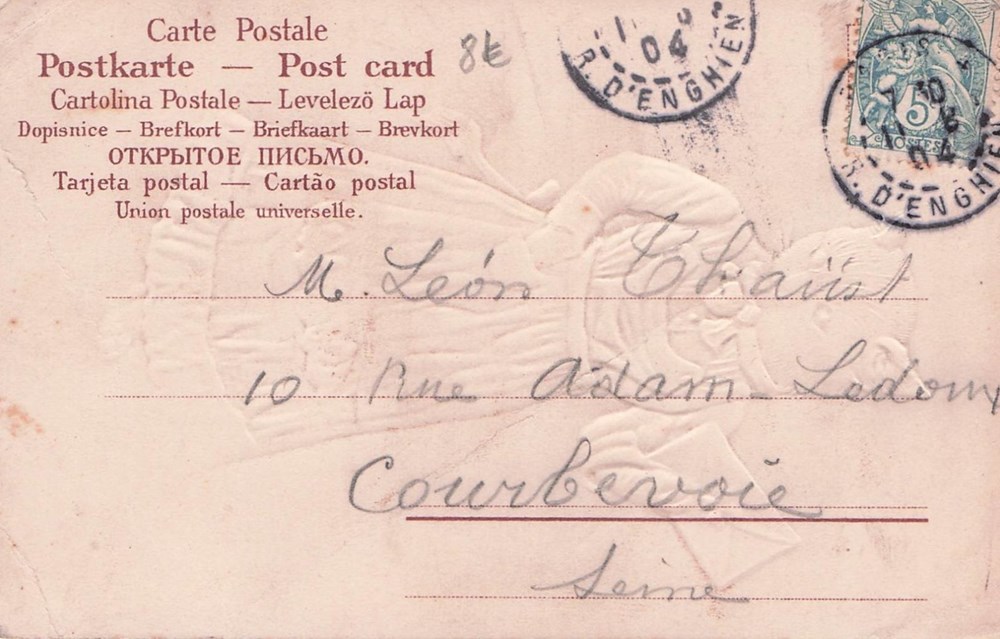 Carte Postale
Postkarte — Post card
Cartolina Postale — Levelező Lap
Dopisnice — Brefkort — Briefkaart — Brevkort
ОТКРЫТОЕ ПИСЬМО.
Tarjeta postal — Cartão postal
Union postale universelle.
8€
04
R. D'ENGHIEN
5
POSTES
7 30
11 6
04
R. D'ENGHIEN
M. Léon
10 Rue Adam-Ledoux
Courbevoie
Seine